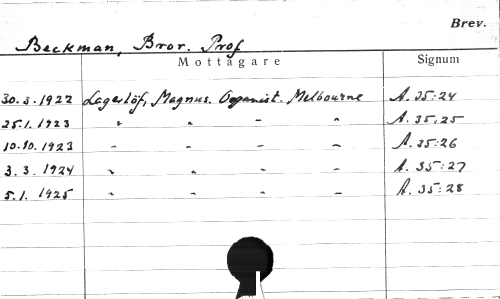 Brev.
Beckman, Bror. Prof
Mottagare Signum
30.3.1922 Lagerlöf, Magnus. Organist. Melbourne A.35:24
25.1.1923 " " " " A.35:25
10.10.1923 " " " " A.35:26
3.3.1924 " " " " A.35:27
5.1.1925 " " " " A.35:28